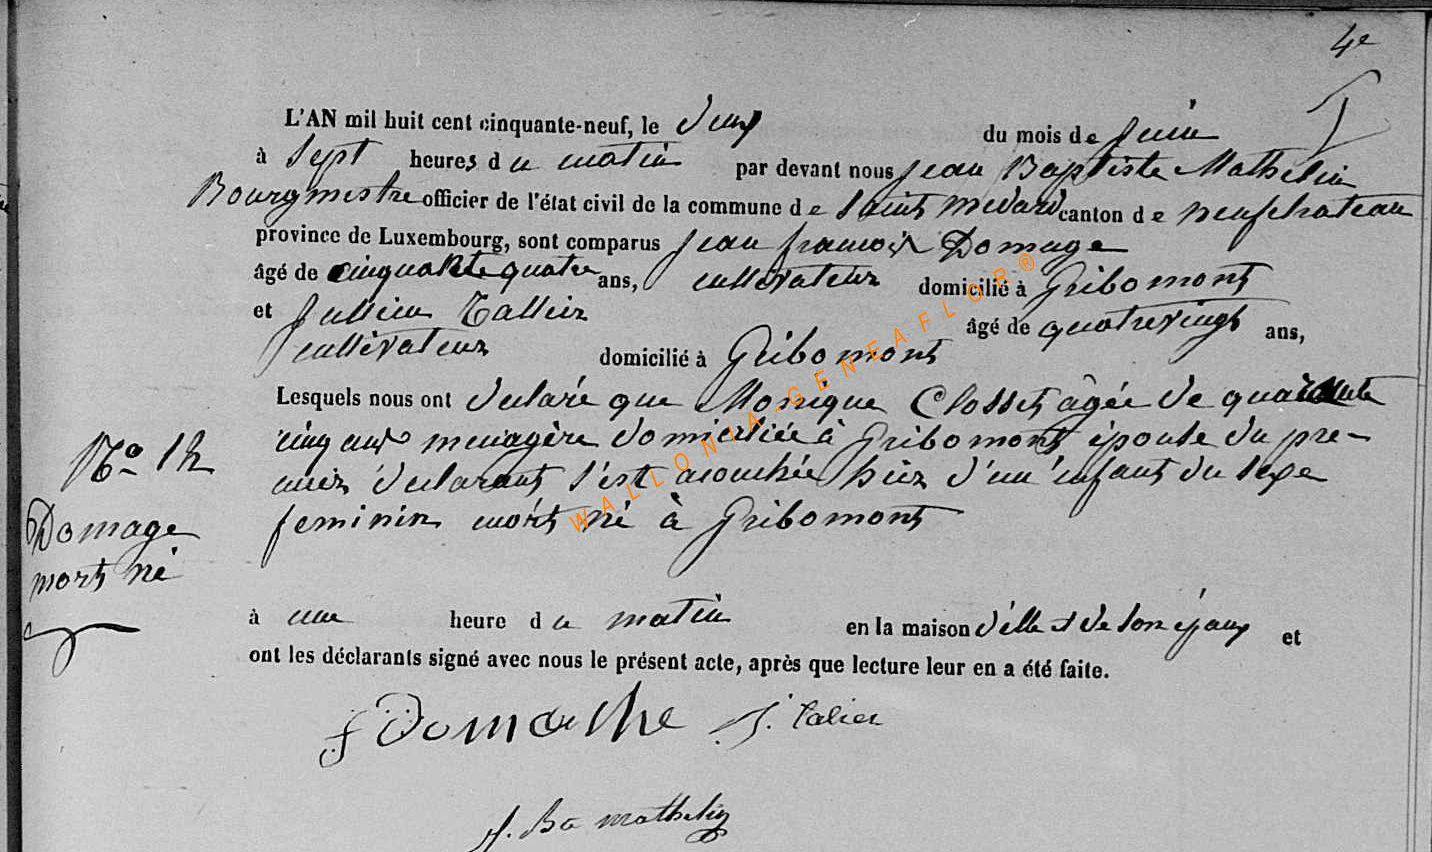 4e
L'AN mil huit cent cinquante-neuf, le deux du mois de Juin
à Sept heures du matin par devant nous Jean Baptiste Mathelin
Bourgmestre officier de l'état civil de la commune de Saint Medard canton de neufchateau
province de Luxembourg, sont comparus Jean francois Domage
âgé de cinquante quatre ans, cultivateur domicilié à Gribomont
et Jullien Tallier âgé de quatrevingt ans,
cultivateur domicilié à Gribomont
Lesquels nous ont declaré que Monique Closset agée de quarante
cinq ans menagère domiciliée à Gribomont épouse du pre-
mier declarant s'est acouchée hier d'un enfant du sexe
feminin mort né à Gribomont
No 12
Domage
mort né
à une heure du matin en la maison d'elle et de son épaux et
ont les déclarants signé avec nous le présent acte, après que lecture leur en a été faite.
f Domathe J. Talier
J. Ba mathelin
WALLONIA-GENEAFLOR®